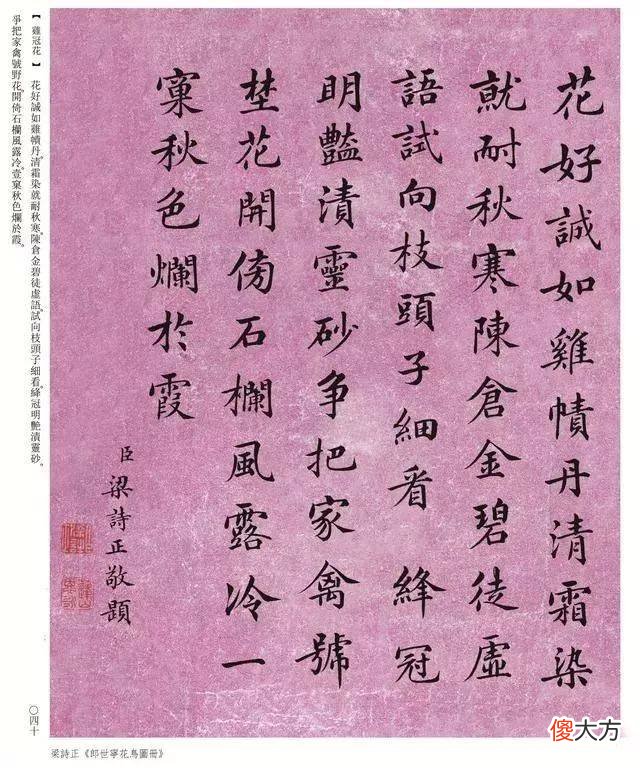 花好誠如雞幘丹清霜染
就耐秋寒陳倉金碧徒虛
語試向枝頭子細看 絳冠
明豔漬靈砂争把家禽號
埜花開傍石欄風露冷一
窠秋色爛於霞
臣梁詩正敬題
【雞冠花】 花好誠如雞幘丹。清霜染就耐秋寒。陳倉金碧徒虛語。試向枝頭子細看。絳冠明艷漬靈砂。
爭把家禽號野花。開倚石欄風露冷。壹窠秋色爛於霞。
〇四十
梁詩正《郎世寧花鳥圖冊》
傻大方